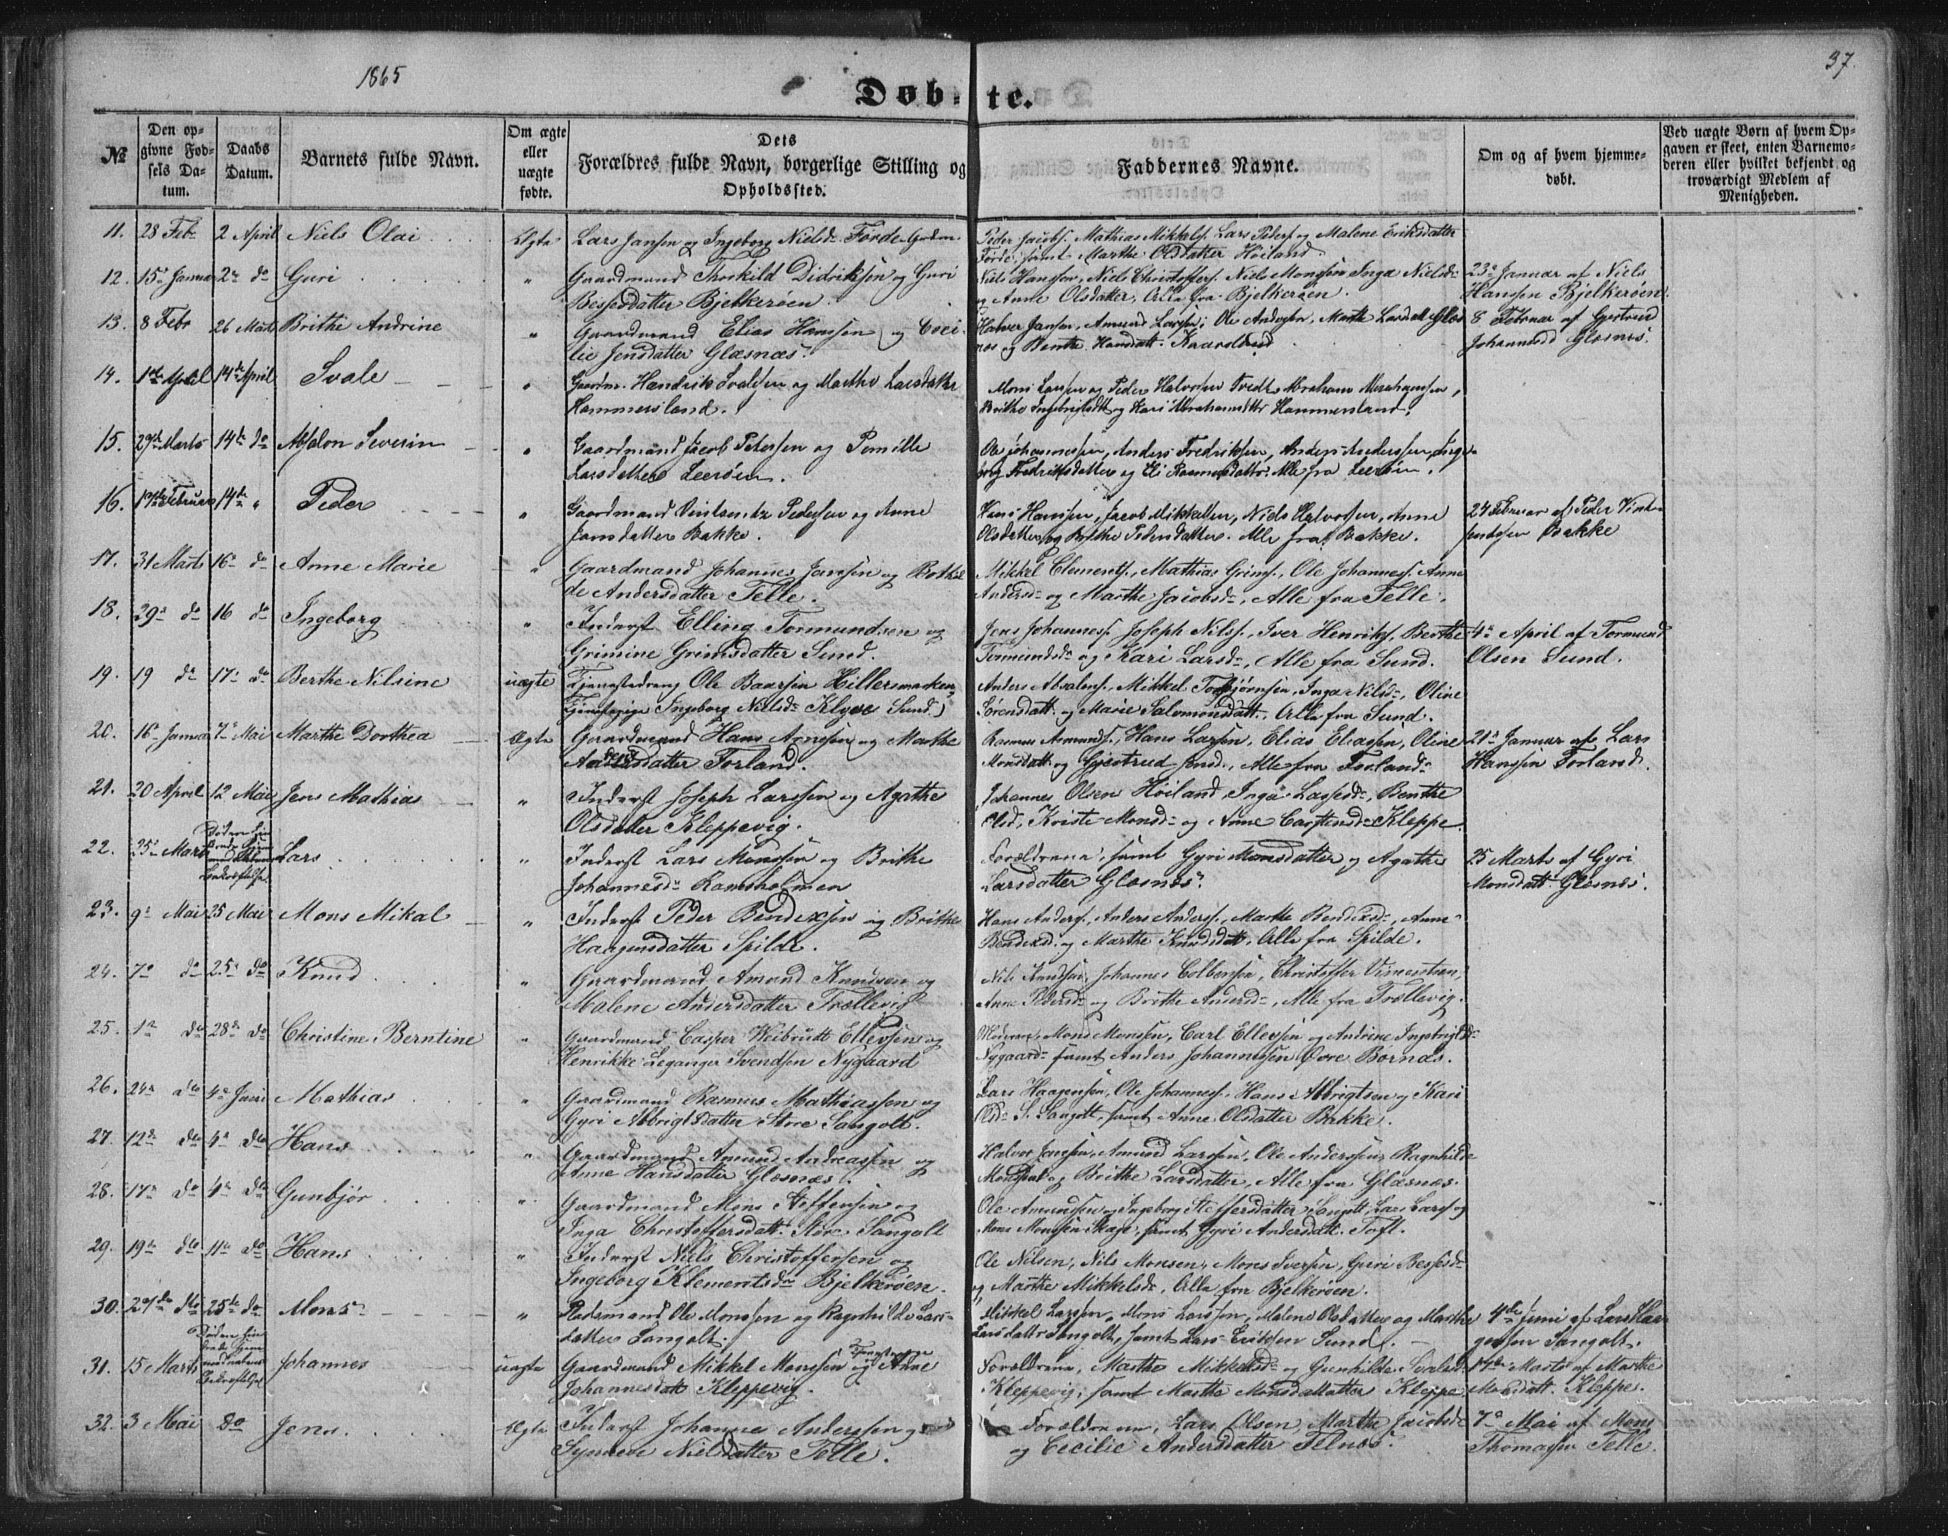 1865
Döbte.
37.
№
Den opgivne Fødsels Datum.
Daabs Datum.
Barnets fulde Navn.
Om ægte eller uægte fødte.
Dets Forældres fulde Navn, borgerlige Stilling og Opholdssted.
Faddernes Navne.
Om og af hvem hjemmedøbt.
Ved uægte Børn af hvem Opgaven er skeet, enten Barnemoderen eller hvilket bekjendt og troværdigt Medlem af Menigheden.
11. 28 Feb 2 April Niels Olai Ægte Lars Jansen og Ingeborg Nielsd Förde Peder Jacobs. Mathias Mikkels. Lars Peders. og Malene Eriksdatter
Förde, samt Marthe Olsdatter Höiland
12. 15 Januar 2 do Guri " Gaardmand Thorkild Didriksen og Guri Niels Hanssen, Niels Christoffers. Niels Monssen Inga Nielsd 23 Januar af Niels
Bessesdatter Bjelkeröen. og Anne Olsdatter, Alle fra Bjelkeröen. Hanssen Bjelkeröen.
13. 8 Febr 26 Marts Brithe Andrine " Gaardmand Elias Hanssen og Ceci- Halvor Jansen, Amund Larsen, Ole Anderssen, Marthe Larsdatt Glæs- 8 Februar af Gjertrud
lie Jensdatter Glæsnæs. næs og Benthe Hansdatt. Johannesd Glæsnæs.
14. 1 April 14de April Svale " Gaardm. Hendrik Svalesen og Marthe Larsdatter Mons Larssen og Peder Halvorsen Tvedt Abraham Abrahamsen,
Hammersland. Brithe og Kari Abrahamsdtr Hammersland.
15. 29 Marts 14de do Absalon Severin " Gaardmand Jacob Pedersen og Pernille Ole Johannessen, Anders Fredriksen, Anders Anderssen, Inge-
Larsdatter Leeröen. borg Fredriksdatter og Eli Rasmusdatter. Alle fra Leeröen.
16. Februar 14de " Peder " Gaardmand Vintsents Pedersen og Anne Hans Hansen, Jacob Mikkelsen, Niels Halvorsen, Anne 24 Februar af Peder Vint-
Jansdatter Bakke. Olsdatter og Brithe Pedersdatter. Alle fra Bakke. sentsen Bakke
17. 31 Marts 16 do Anne Marie " Gaardmand Johannes Jansen og Bothil- Mikkel Clements., Mathias Grims., Ole Johannes. Anne
de Andersdatter Telle. Andersd og Marthe Jacobsd, Alle fra Telle.
18. 29 do 16 do Ingeborg " Inderst Elling Tormundsen og Jens Johannes. Joseph Nils., Iver Henriks. Berthe 4 April af Tormund
Grimine Grimsdatter Sund. Tormundsd og Kari Larsd, Alle fra Sund. Olsen Sund.
19. 19 do 17 do Berthe Nilsine uægte Tjenestedreng Ole Baarsen Anders Absalons. Mikkel Torbjörnsen, Inga Nilsd, Oline
Tjenestepige Ingeborg Nielsd Sund Sörensdatt. og Marie Salomonsdatt. Alle fra Sund.
20. 16 Januar 7 Mai Marthe Dorthea Ægte Gaardmand Hans og Marthe Rasmus Asmunds. Hans Larsen, Elias Eliassen, Oline 21 Januar af Lars
Torland. Monsdatt og Gjertrud Jensd, Alle fra Torland. Hanssen Torland.
21. 20 April 12 Mai Jens Mathias " Inderst Joseph Larssen og Agathe Johannes Olsen Höiland, Inga Lassesd, Benthe
Olsdatter Kleppevig. Olsd, Kriste Monsd og Anne Carstensd Kleppe.
22. 25 Marts Lars " Inderst Lars Monssen og Brithe Forældrene, samt Gyri Monsdatter og Agathe 25 Marts af Gyri
Johannesd Ramsholmen Larsdatter Glæsnæs. Monsdatt Glæsnæs.
23. 9 Mai 25 Mai Mons Mikal " Inderst Peder Bendixsen og Brithe Hans Anders., Anders Anders., Marthe Bendixd, Anne
Haagensdatter Spilde. Bendixd. og Marthe Knudsdatt, Alle fra Spilde.
24. 7 do 25 do Knud " Gaardmand Amund Knudsen og Nils Knudsen, Johannes Colbensen, Christoffer
Malene Andersdatter Trællevig Anne Pedersd og Brithe Andersd, Alle fra Trællevig.
25. 1 do 28 do Christine Berntine " Gaardmand Casper Weibrudt Ellersen og Moderen, Mons Monsen, Carl Ellersen og Andrine Ingebrigtsd
Henrikke Leganger Svendsen Nygaard Nygaard samt Anders Johannessen Övre Börnæs.
26. 24 do 4 Juni Mathias " Gaardmand Rasmus Mathiassen og Lars Haagensen, Ole Johannes. Hans Abbrigtsen og Kari
Gyri Abbrigtsdatter Store Sangolt. Olsd S. Sangolt, samt Anne Olsdatter Bakke.
27. 12 do 4 do Hans " Gaardmand Amund Andreassen og Halvor Jansen, Amund Larssen, Ole Anderssen, Ragnhilde
Anne Hansdatter Glæsnæs. Monsdatt og Brithe Larsdatter, Alle fra Glæsnæs.
28. 17 do 4 do Gunbjör " Gaardmand Mons Steffensen og Ole Amundsen og Ingeborg Steffensdatter Sangolt Lars Lars. og
Inga Christoffersdatt. Store Sangolt Mons Monsen samt Gyri Andersdatt. Toft.
29. 19 do 11 do Hans " Inderst Niels Christoffersen og Ole Nilsen, Nils Monsen, Mons Iversen, Guri Bessesd
Ingeborg Klementsd Bjelkeröen. og Marthe Mikkelsd. Alle fra Bjelkeröen.
30. 27 do 25 do Mons " Pladsmand Ole Monssen og Ragnhilde Lars- Mikkel Larssen, Mons Larssen, Malene Olsdatter og Marthe 4de Juni af Lars Haa-
datter Sangolt. Larsdatter Sangolt, samt Lars Eriksen Sund. gensen Sangolt.
31. 15 Marts Johannes uægte Gaardmand Mikkel Monssen og Anne Forældrene, Marthe Mikkelsd og Gunhilde Svalesd Marts af Marthe
Johannesdatt Kleppevig. Kleppevig, samt Marthe Monsdatter Kleppe Monsdatt. Kleppe.
32. 3 Mai do Jens Ægte Inderst Johannes Anderssen og Forældrene, Lars Olsen, Marthe Jacobsd 7 Mai af Mons
Synneve Nielsdatter Telle. og Cecilie Andersdatter Telnæs. Thomassen Telle.